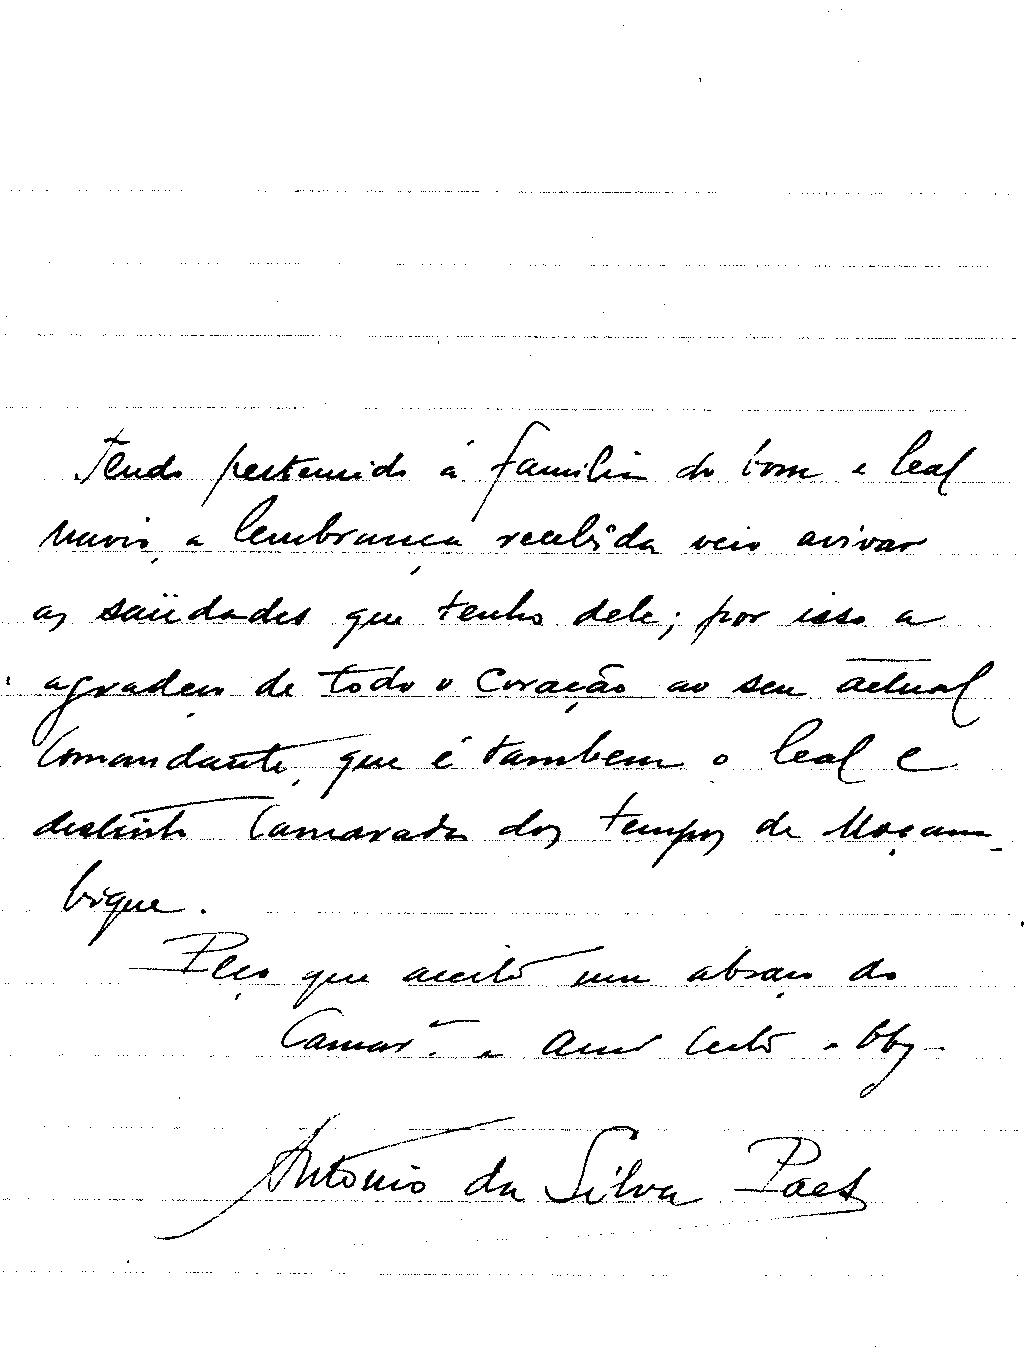 Tendo pertencido á familia do bom e leal
navio, a lembrança recebida veio avivar
as saüdades que tenho dele; por isso a
agradeço de todo o coração ao seu actual
Comandante, que é tambem o leal e
distinto Camarada dos tempos de Moçam-
bique.
Peço que aceite um abraço do
Camar.ª e amº certo e obg-
António da Silva Paes